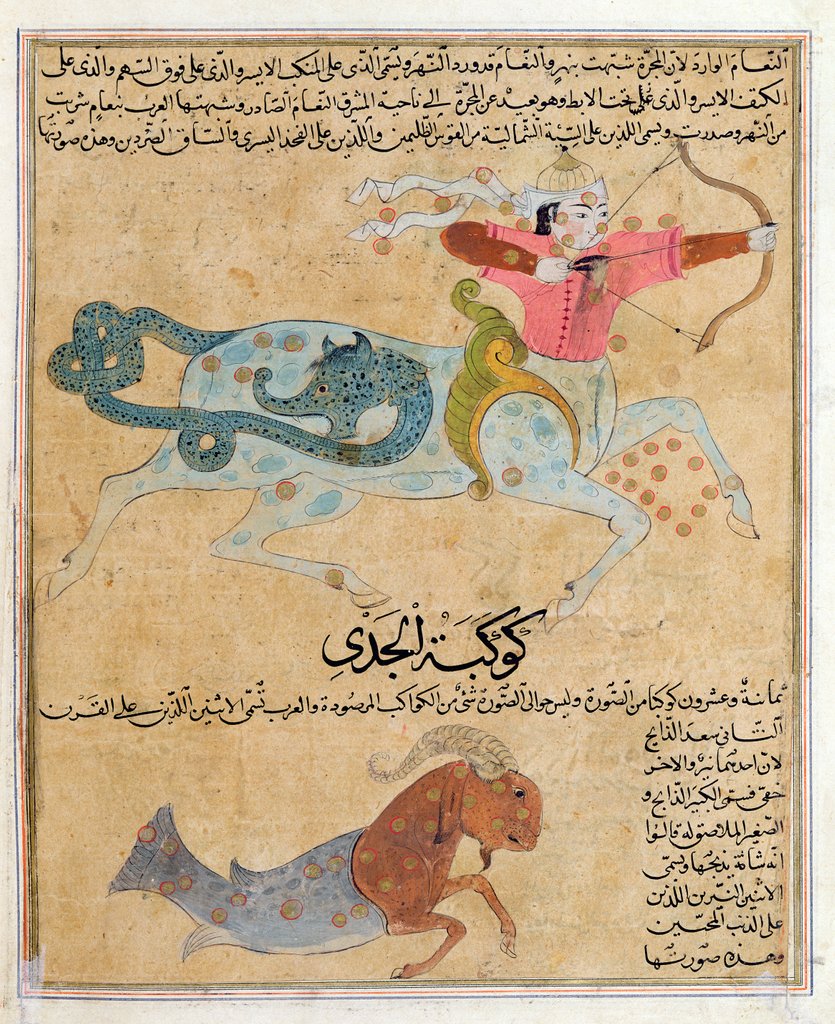 النعام الوارد لان المجرة شبهت بنهر والنعام قد ورد النهر ويسمى الذى على المنكب الايسر والذى على فوق السهم والذى على
الكتف الايسر والذى على تحت الابط وهو بعيد عن المجرة الى ناحية المشرق النعام الصادر وشبهتها العرب بنعام شربت
من النهر وصدرت ويسمى اللذين على السية الشمالية من القوس الظليمين واللذين على الفخذ اليسرى والساق الصردين وهذه صورتها
كوكبة الجدي
ثمانية وعشرون كوكبا من الصورة وليس حوالى الصورة شئ من الكواكب المرصودة والعرب تسمى الاثنين اللذين على القرن
الثانى سعد الذابح
لان احدهما نير والاخر
خفى فسمى الكبير الذابح و
الصغير الملاصق له قالوا
انه شاته يذبحها ويسمى
الاثنين النيرين اللذين
على الذنب المحبين
وهذه صورتها